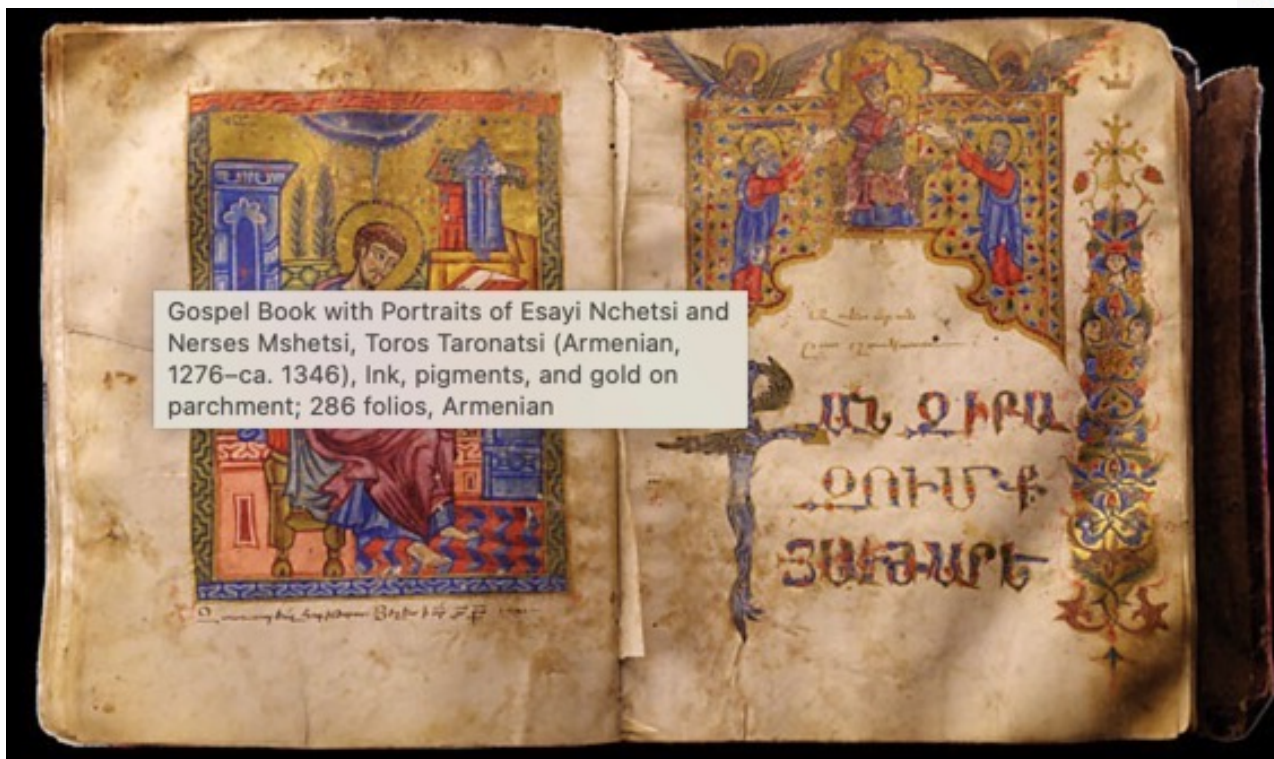 Gospel Book with Portraits of Esayi Nchetsi and
Nerses Mshetsi, Toros Taronatsi (Armenian,
1276–ca. 1346), Ink, pigments, and gold on
parchment; 286 folios, Armenian
ՔԱՆԶԻ ԲԱ
ԶՈՒՄՔ
ՅԱՒԺԱՐԵ